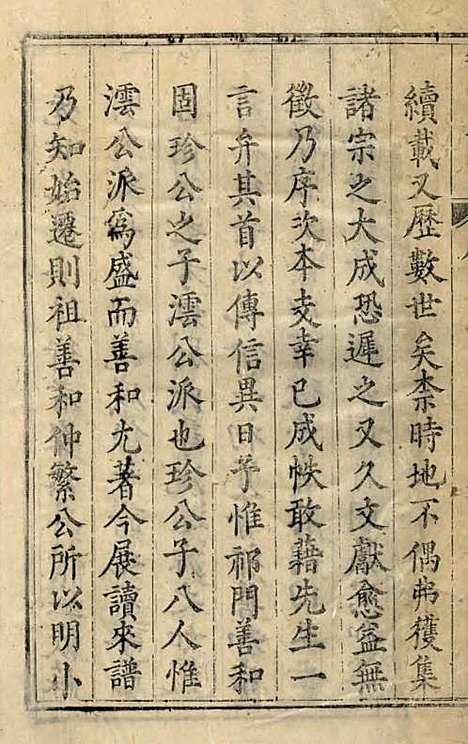 續載又歷數世矣柰時地不偶弗獲集
諸宗之大成恐遲之又久文獻愈益無
徵乃序次本支幸已成帙敢藉先生一
言弁其首以傳信異日予惟祁門善和
固珍公之子澐公派也珍公子八人惟
澐公派爲盛而善和尤著今展讀來譜
乃知始遷則祖善和仲繁公所以明小